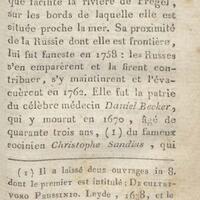 que facilite la rivière de Pregel,
sur les bords de laquelle elle est
située proche la mer. Sa proximité
de la Russie dont elle est frontière,
lui fut funeste en 1758 : les Russes
s'en emparèrent et la firent con-
tribuer, s'y maintinrent et l'éva-
cuèrent en 1762. Elle fut la patrie
du célèbre médecin Daniel Becker,
qui y mourut en 1670, âgé de
quarante trois ans, (1) du fameux
socinien Christophe Sandius, qui
(1) Il a laissé deux ouvrages in 8.
dont le premier est intitulé: DE CULTRI-
VORO PRUSSINIO. Leyde, 1638, et le